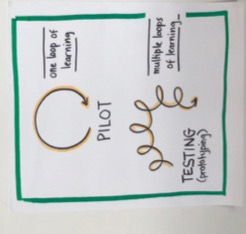 one loop of
learning
PILOT
multiple loops
of learning...
TESTING
(prototyping)